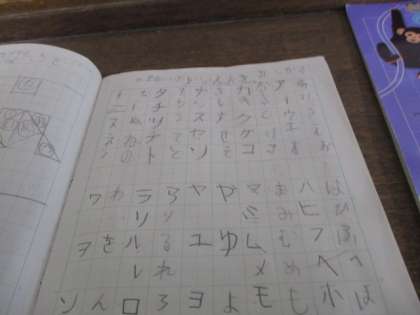 あいうえお
アイウエオ
かきくけこ
カキクケコ
さしすせそ
サシスセソ
たちつてと
タチツテト
なにぬねの
ナニヌネノ
はひふへほ
ハヒフヘホ
まみむめも
マミムメモ
やゆよ
ヤユヨ
らりるれろ
ラリルレロ
わをん
ワヲン